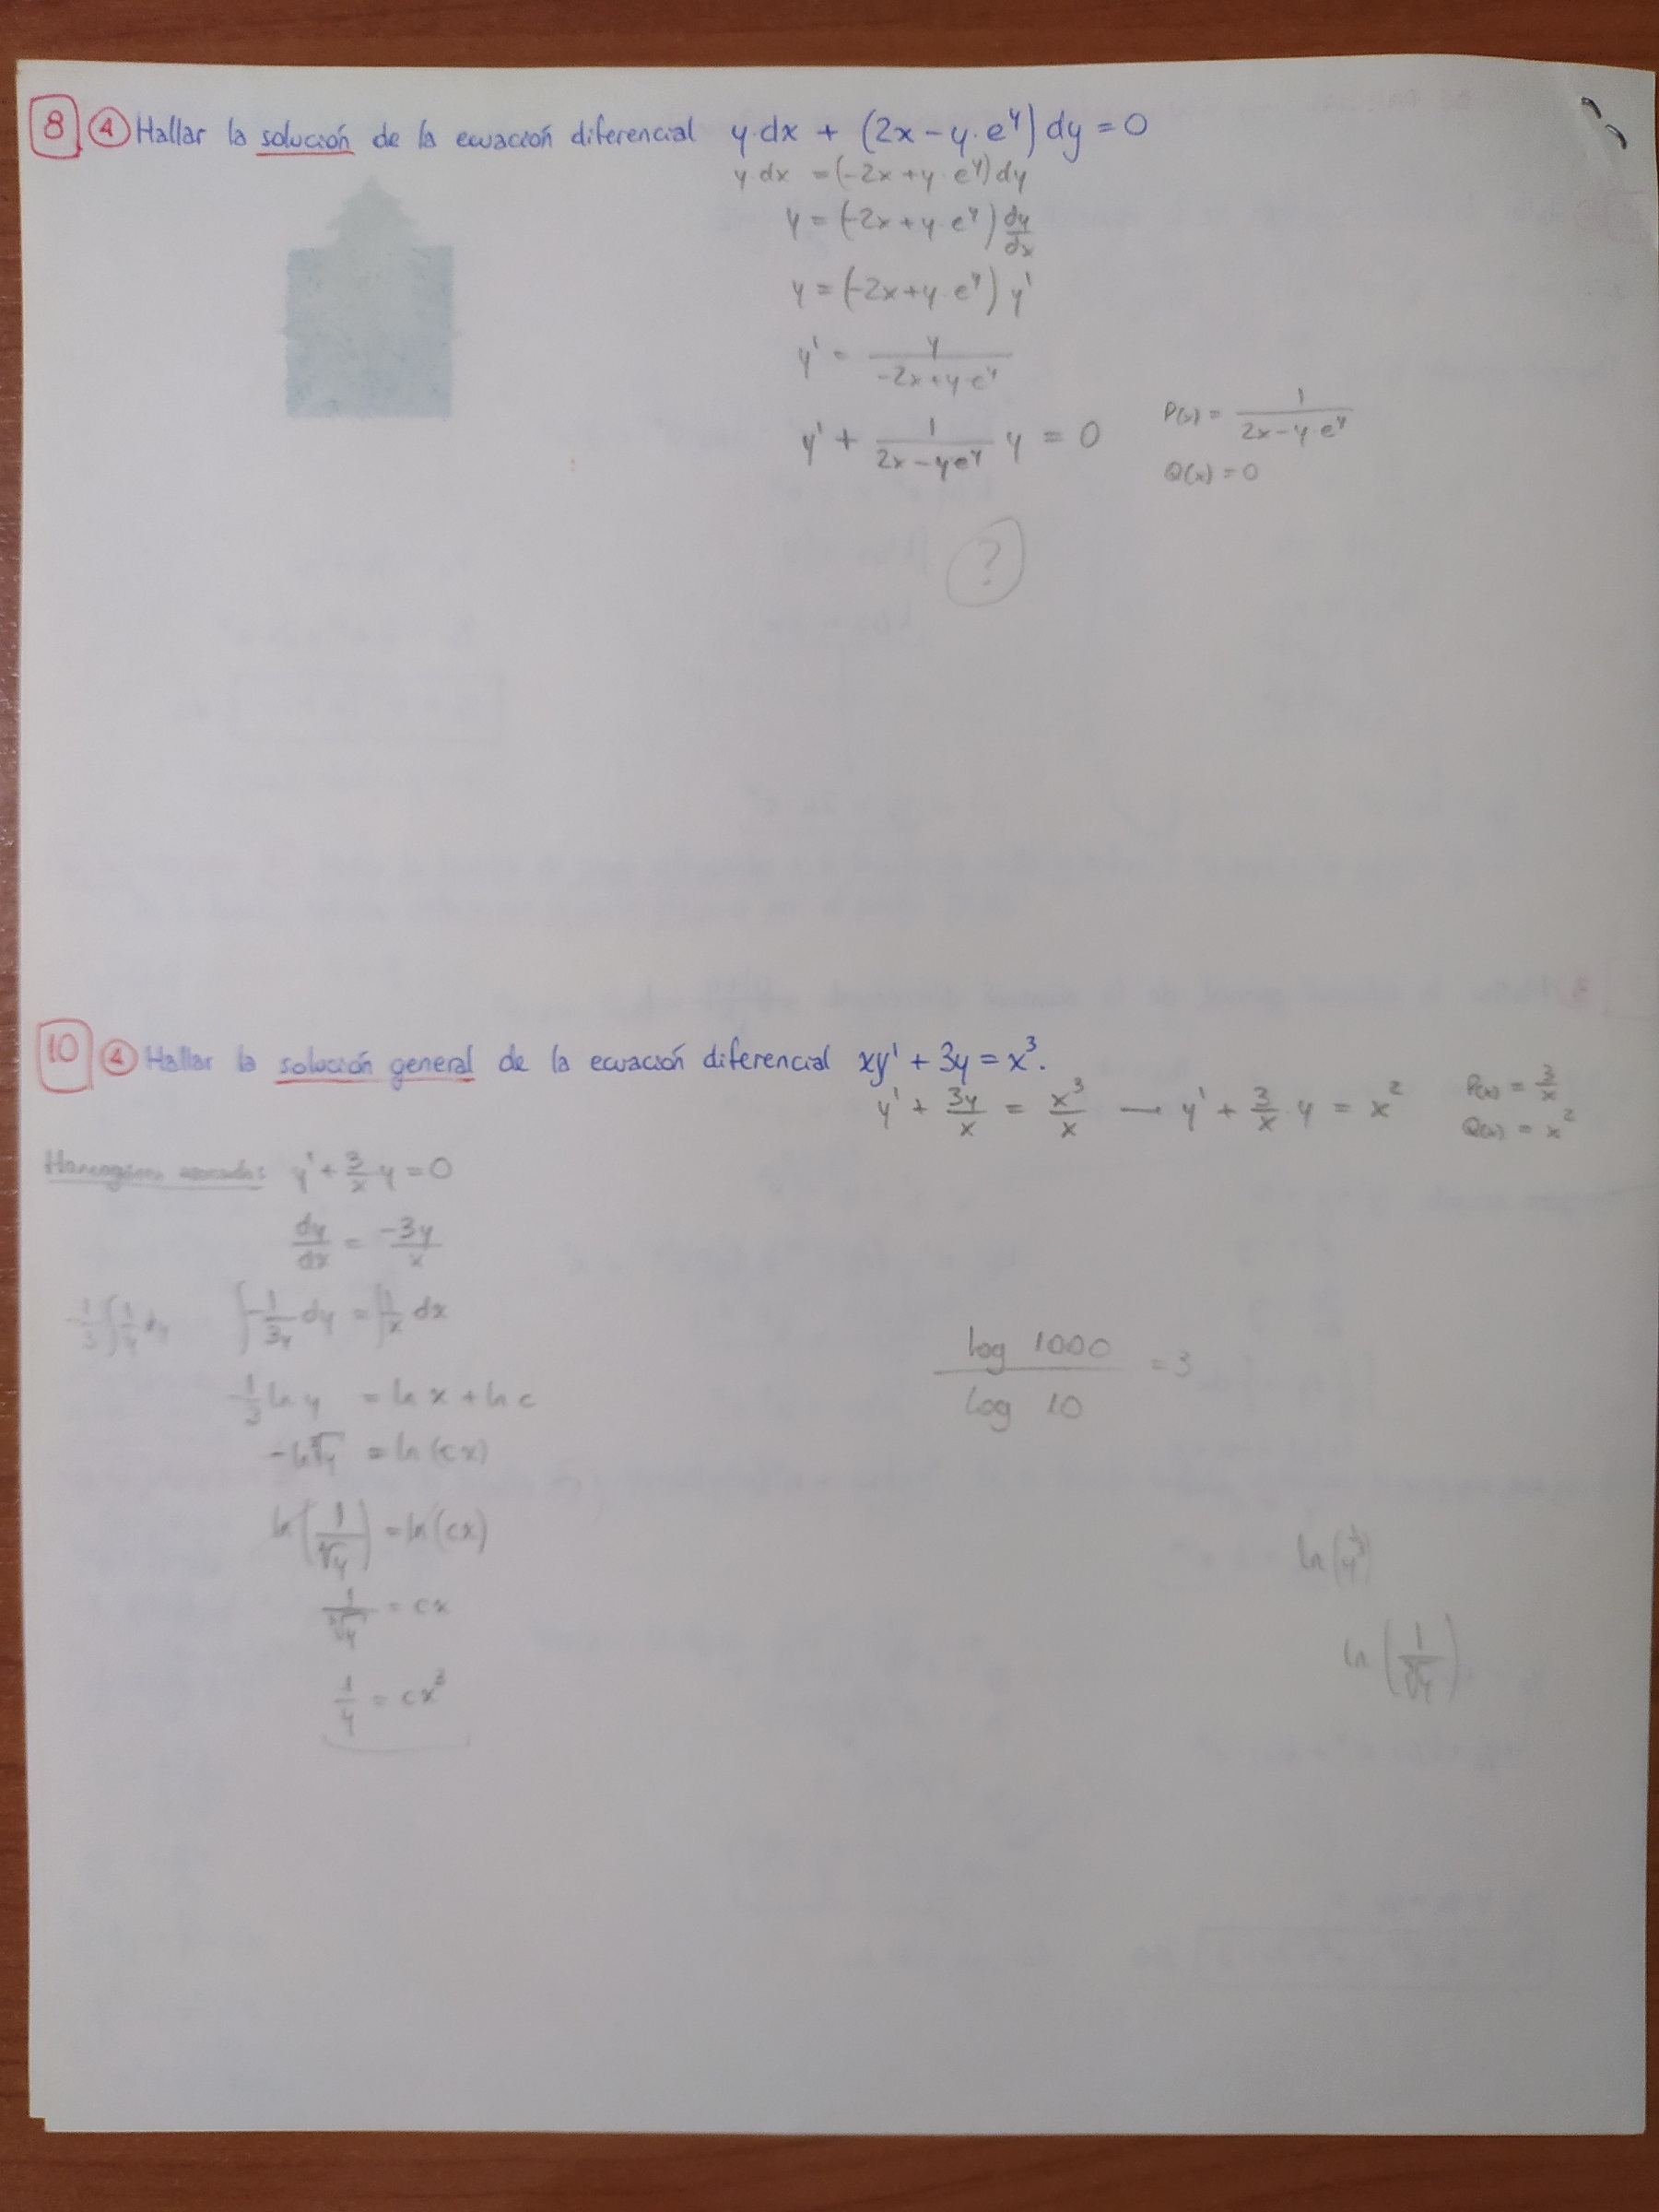 8 4 Hallar la solución de la ecuación diferencial y·dx + (2x - y·e^y) dy = 0
y·dx = (-2x + y·e^y) dy
y = (-2x + y·e^y) dy/dx
y = (-2x + y·e^y) y'
y' = y/(-2x + y·e^y)
y' + 1/(2x - y·e^y) y = 0
P(x) = 1/(2x - y e^y)
Q(x) = 0
?
10 4 Hallar la solución general de la ecuación diferencial xy' + 3y = x³.
y' + 3y/x = x³/x → y' + 3/x · y = x²
P(x) = 3/x
Q(x) = x²
Homogénea asociada: y' + 3/x y = 0
dy/dx = -3y/x
-1/3 ∫ 1/y dy
∫ -1/3y dy = ∫ 1/x dx
-1/3 ln y = ln x + ln c
-ln ∛y = ln (cx)
ln (1/∛y) = ln (cx)
1/∛y = cx
1/y = cx³
log 1000 / log 10 = 3
ln (1/∛y)